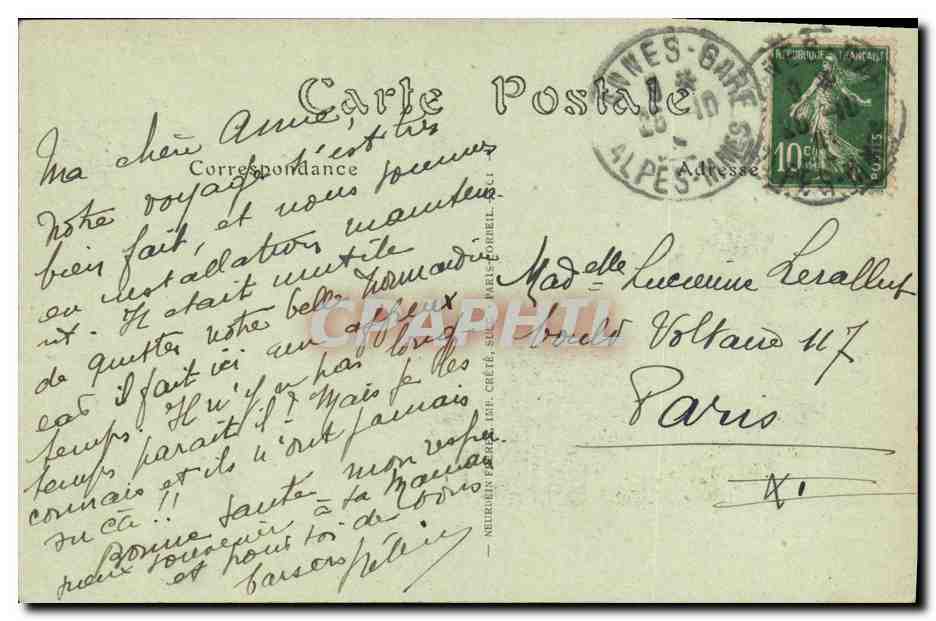 Carte Postale
Correspondance
Adresse
Ma chère Amie,
Notre voyage s'est très
bien fait, et nous sommes
en installation mainten
nt. Il était inutile
de quitter notre belle Normandie
car il fait ici un affreux
temps. Il n'y a pas longt
temps paraît il? Mais je les
connais et ils n'ont jamais
vu ça!!
Bonne santé mon respec
tueux souvenir à ta Maman
et pour toi de bons
baisers
Madelle Lucienne Lerallut
bould Voltaire 117
Paris
XI
CANNES-GARE
ALPES-MMES
REPUBLIQUE FRANÇAISE
10
POSTES
NEURDEIN FRÈRES, IMP. CRÉTÉ, SUC. PARIS-CORBEIL.
CPAPHIL